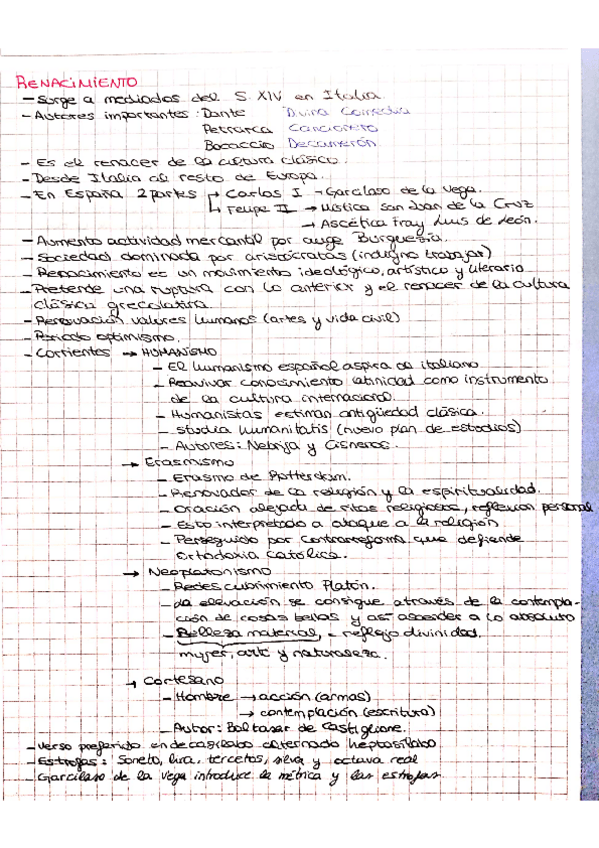 RENACIMIENTO
- Surge a mediados del S. XIV en Italia.
- Autores importantes: Dante Divina Comedia
Petrarca Cancionero
Bocaccio Decamerón
- Es el renacer de la cultura clásica.
- Desde Italia al resto de Europa.
- En España 2 partes → Carlos I → Garcilaso de la Vega.
→ Felipe II → Mística San Juan de la Cruz
→ Ascética Fray Luis de León.
- Aumento actividad mercantil por auge Burguesía.
- Sociedad dominada por aristócratas (indigno trabajar)
- Renacimiento es un movimiento ideológico, artístico y literario
- Pretende una ruptura con lo anterior y el renacer de la cultura
clásica grecolatina.
- Renovación valores humanos (artes y vida civil)
- Periodo optimismo.
- Corrientes → HUMANISMO
- El humanismo español aspira al italiano
- Reavivar conocimiento latinidad como instrumento
de la cultura internacional.
- Humanistas estiman antigüedad clásica.
- Studia humanitatis (nuevo plan de estudios)
- Autores: Nebrija y Cisneros.
→ Erasmismo
- Erasmo de Rotterdam.
- Renovador de la religión y la espiritualidad.
- Oración alejada de ritos religiosos, reflexion personal
- Esto interpretado a ataque a la religión
- Perseguido por contrarreforma que defiende
ortodoxia católica.
→ Neoplatonismo
- Redescubrimiento Platón.
- La elevación se consigue através de la contempla-
ción de cosas bellas y así ascender a lo absoluto
- Belleza material, = reflejo divinidad.
mujer, arte y naturaleza.
→ Cortesano
- Hombre → acción (armas)
→ contemplación (escritura)
- Autor: Baltasar de Castiglione.
- Verso preferido endecasílabo alternado heptasílabo
- Estrofas: Soneto, lira, tercetos, silva y octava real
- Garcilaso de la Vega introduce la métrica y las estrofas.